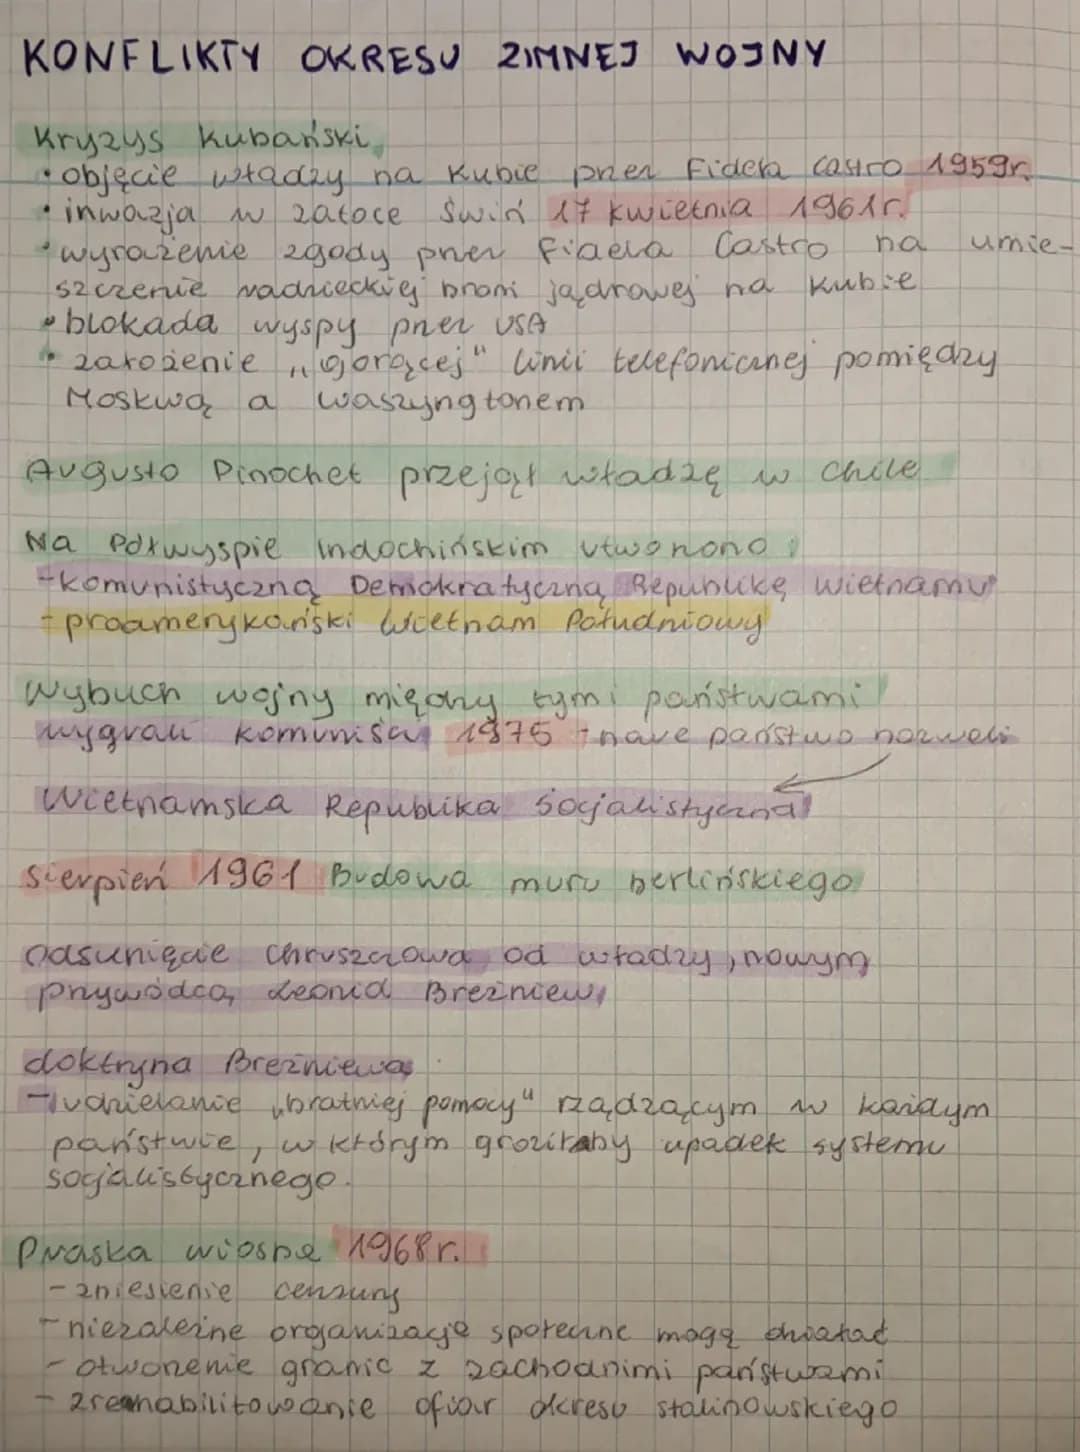 KONFLIKTY OKRESU ZIMNEJ WOJNY
Kryzys kubański
• objęcie władzy na Kubie przez Fidela Castro 1959r.
• inwazja w zatoce Świń 17 kwietnia 1961r.
• wyrażenie zgody przez Fidela Castro na umie-
szczenie radzieckiej broni jądrowej na Kubie
• blokada wyspy przez USA
• założenie „gorącej" linii telefonicznej pomiędzy
Moskwą a Waszyngtonem
Augusto Pinochet przejął władzę w Chile
Na Półwyspie Indochińskim utworzono:
- komunistyczną Demokratyczną Republikę Wietnamu
- proamerykański Wietnam Południowy
Wybuch wojny między tymi państwami
wygrali komuniści 1975 - nowe państwo nazwali
Wietnamska Republika Socjalistyczna
Sierpień 1961 Budowa muru berlińskiego
Odsunięcie Chruszczowa od władzy, nowym
przywódcą Leonid Breżniew
doktryna Breżniewa
- udzielanie „bratniej pomocy" rządzącym w każdym
państwie, w którym groziłaby upadek systemu
socjalistycznego.
Praska wiosna 1968r.
- zniesienie cenzury
- niezależne organizacje społeczne mogą działać
- otworzenie granic z zachodnimi państwami
- zrehabilitowanie ofiar okresu stalinowskiego